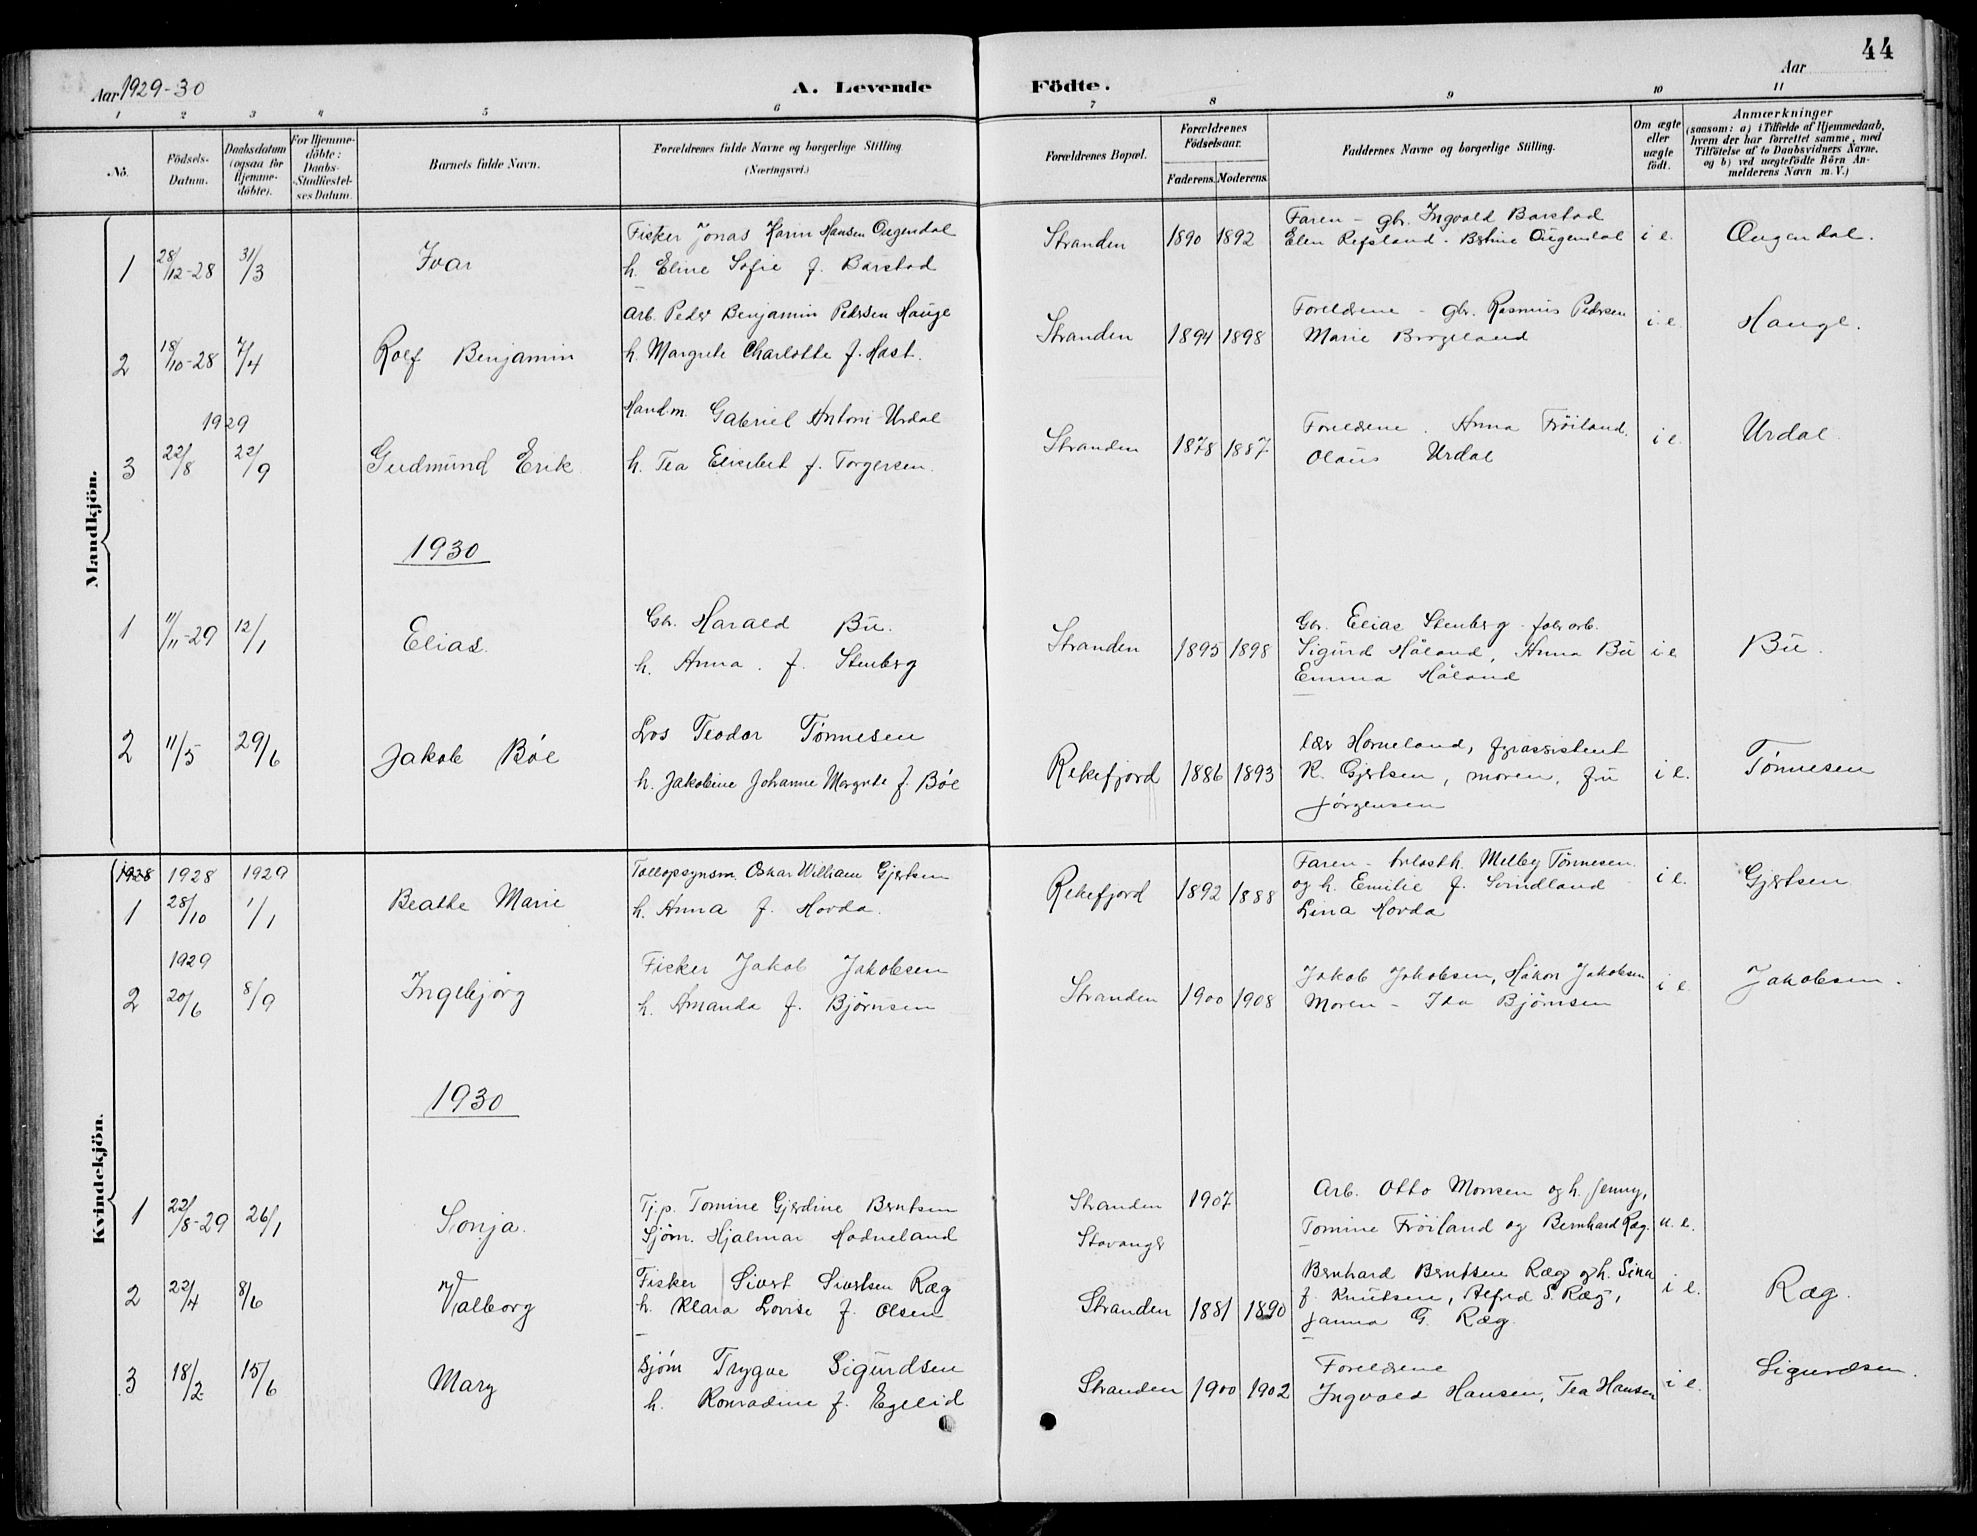 44
Aar 1929-30
A. Levende Födte.
Aar
1 2 3 4 5 6 7 8 9 10 11
No.
Födsels-Datum.
Daabsdatum (ogsaa for Hjemmedöbte).
For Hjemmedöbte: Daabs-Stadfæstelses Datum.
Barnets fulde Navn.
Forældrenes fulde Navne og borgerlige Stilling (Næringsvei.)
Forældrenes Bopæl.
Forældrenes Födselsaar.
Faderens. Moderens.
Faddernes Navne og borgerlige Stilling.
Om ægte eller uægte födt.
Anmærkninger
(saasom: a) i Tilfælde af Hjemmedaab, hvem der har forrettet samme, med Tilföielse af to Daabsvidners Navne, og b) ved uægtefödte Börn Anmelderens Navn m. V.)
Mandkjön.
1 28/12-28 31/3 Ivar
Fisker Jonas Karin Hansen Ougendal
h. Eline Sofie f. Barstad
Stranden 1890 1892
Faren - gbr. Ingvald Barstad
Elen Refsland. Betine Ougendal i e. Ougendal.
2 18/10-28 7/4 Rolf Benjamin
Arb. Peder Benjamin Pedersen Hauge
h. Margrete Charlotte f. Hast.
Stranden 1894 1898
Foreldrene - gbr. Rasmus Pedersen
Marie Brogeland i. e. Hauge.
1929
3 22/8 22/9 Gudmund Erik
Handm. Gabriel Antoni Urdal
h. Tea Elisebet f. Torgersen.
Stranden 1878 1887
Foreldrene. Anna Fröiland.
Olaus Urdal i e. Urdal.
1930
1 11/11-29 12/1 Elias.
Gbr. Harald Bu.
h. Anna. f. Stenberg
Stranden 1895 1898
Gbr. Elias Stenberg - fabr arb.
Sigurd Håland, Anna Bu
Emma Håland i e Bu.
2 11/5 29/6 Jakob Böe
Los Teodor Tönnesen
h. Jakobine Johanne Margrete f. Böe
Rekefjord 1886 1893
lær Horneland, fyrassistent
K. Gjertsen, moren, fru
Jörgensen i e. Tönnesen
Kvindekjön.
1928 1928 1929
1 28/10 1/1 Beathe Marie
Tollopsynsm. Oskar William Gjertsen
h. Anna f. Hovda.
Rekefjord 1892 1888
Faren - Melby Tönnesen
og h. Emilie f. Svindland
Lina Hovda i e. Gjertsen
1929
2 20/6 8/9 Ingebjörg
Fisker Jakob Jakobsen
h. Amanda f. Björnsen
Stranden 1900 1908
Jakob Jakobsen, Håkon Jakobsen
Moren - Ida Björnsen i e. Jakobsen.
1930
1 22/8-29 26/1 Sonja.
Tj.p. Tomine Gjerdine Berntsen
Sjöm. Hjalmar Hadneland
Stranden 1907
Stavanger
Arb. Otto Monsen og h. Jenny,
Tomine Fröiland og Bernhard Ræg. u. e.
2 22/4 8/6 Valborg
Fisker Sivert Sivertsen Ræg
h. Klara Lovise f. Olsen
Stranden 1881 1890
Bernhard Berntsen Ræg og h. Sina
f. Knutsen, Alfred S. Ræg,
Janna G. Ræg. i e. Ræg.
3 18/2 15/6 Mary
Sjöm Trygve Sigurdsen
h. Konradine f. Egelid
Stranden 1900 1902
Foreldrene
Ingvald Hansen, Tea Hansen i e. Sigurdsen.